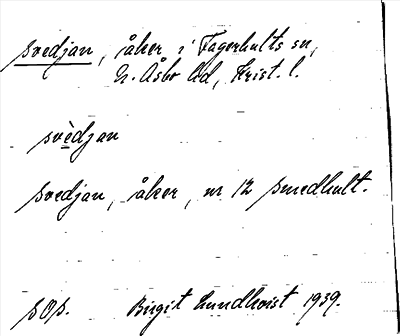 svedjan, åker i Fagerhults sn,
N. Åsbo hd, Krist. l.
svèdjan
svedjan, åker, nr 12 Smedhult.
sOp. Birgit Lundkvist 1939.